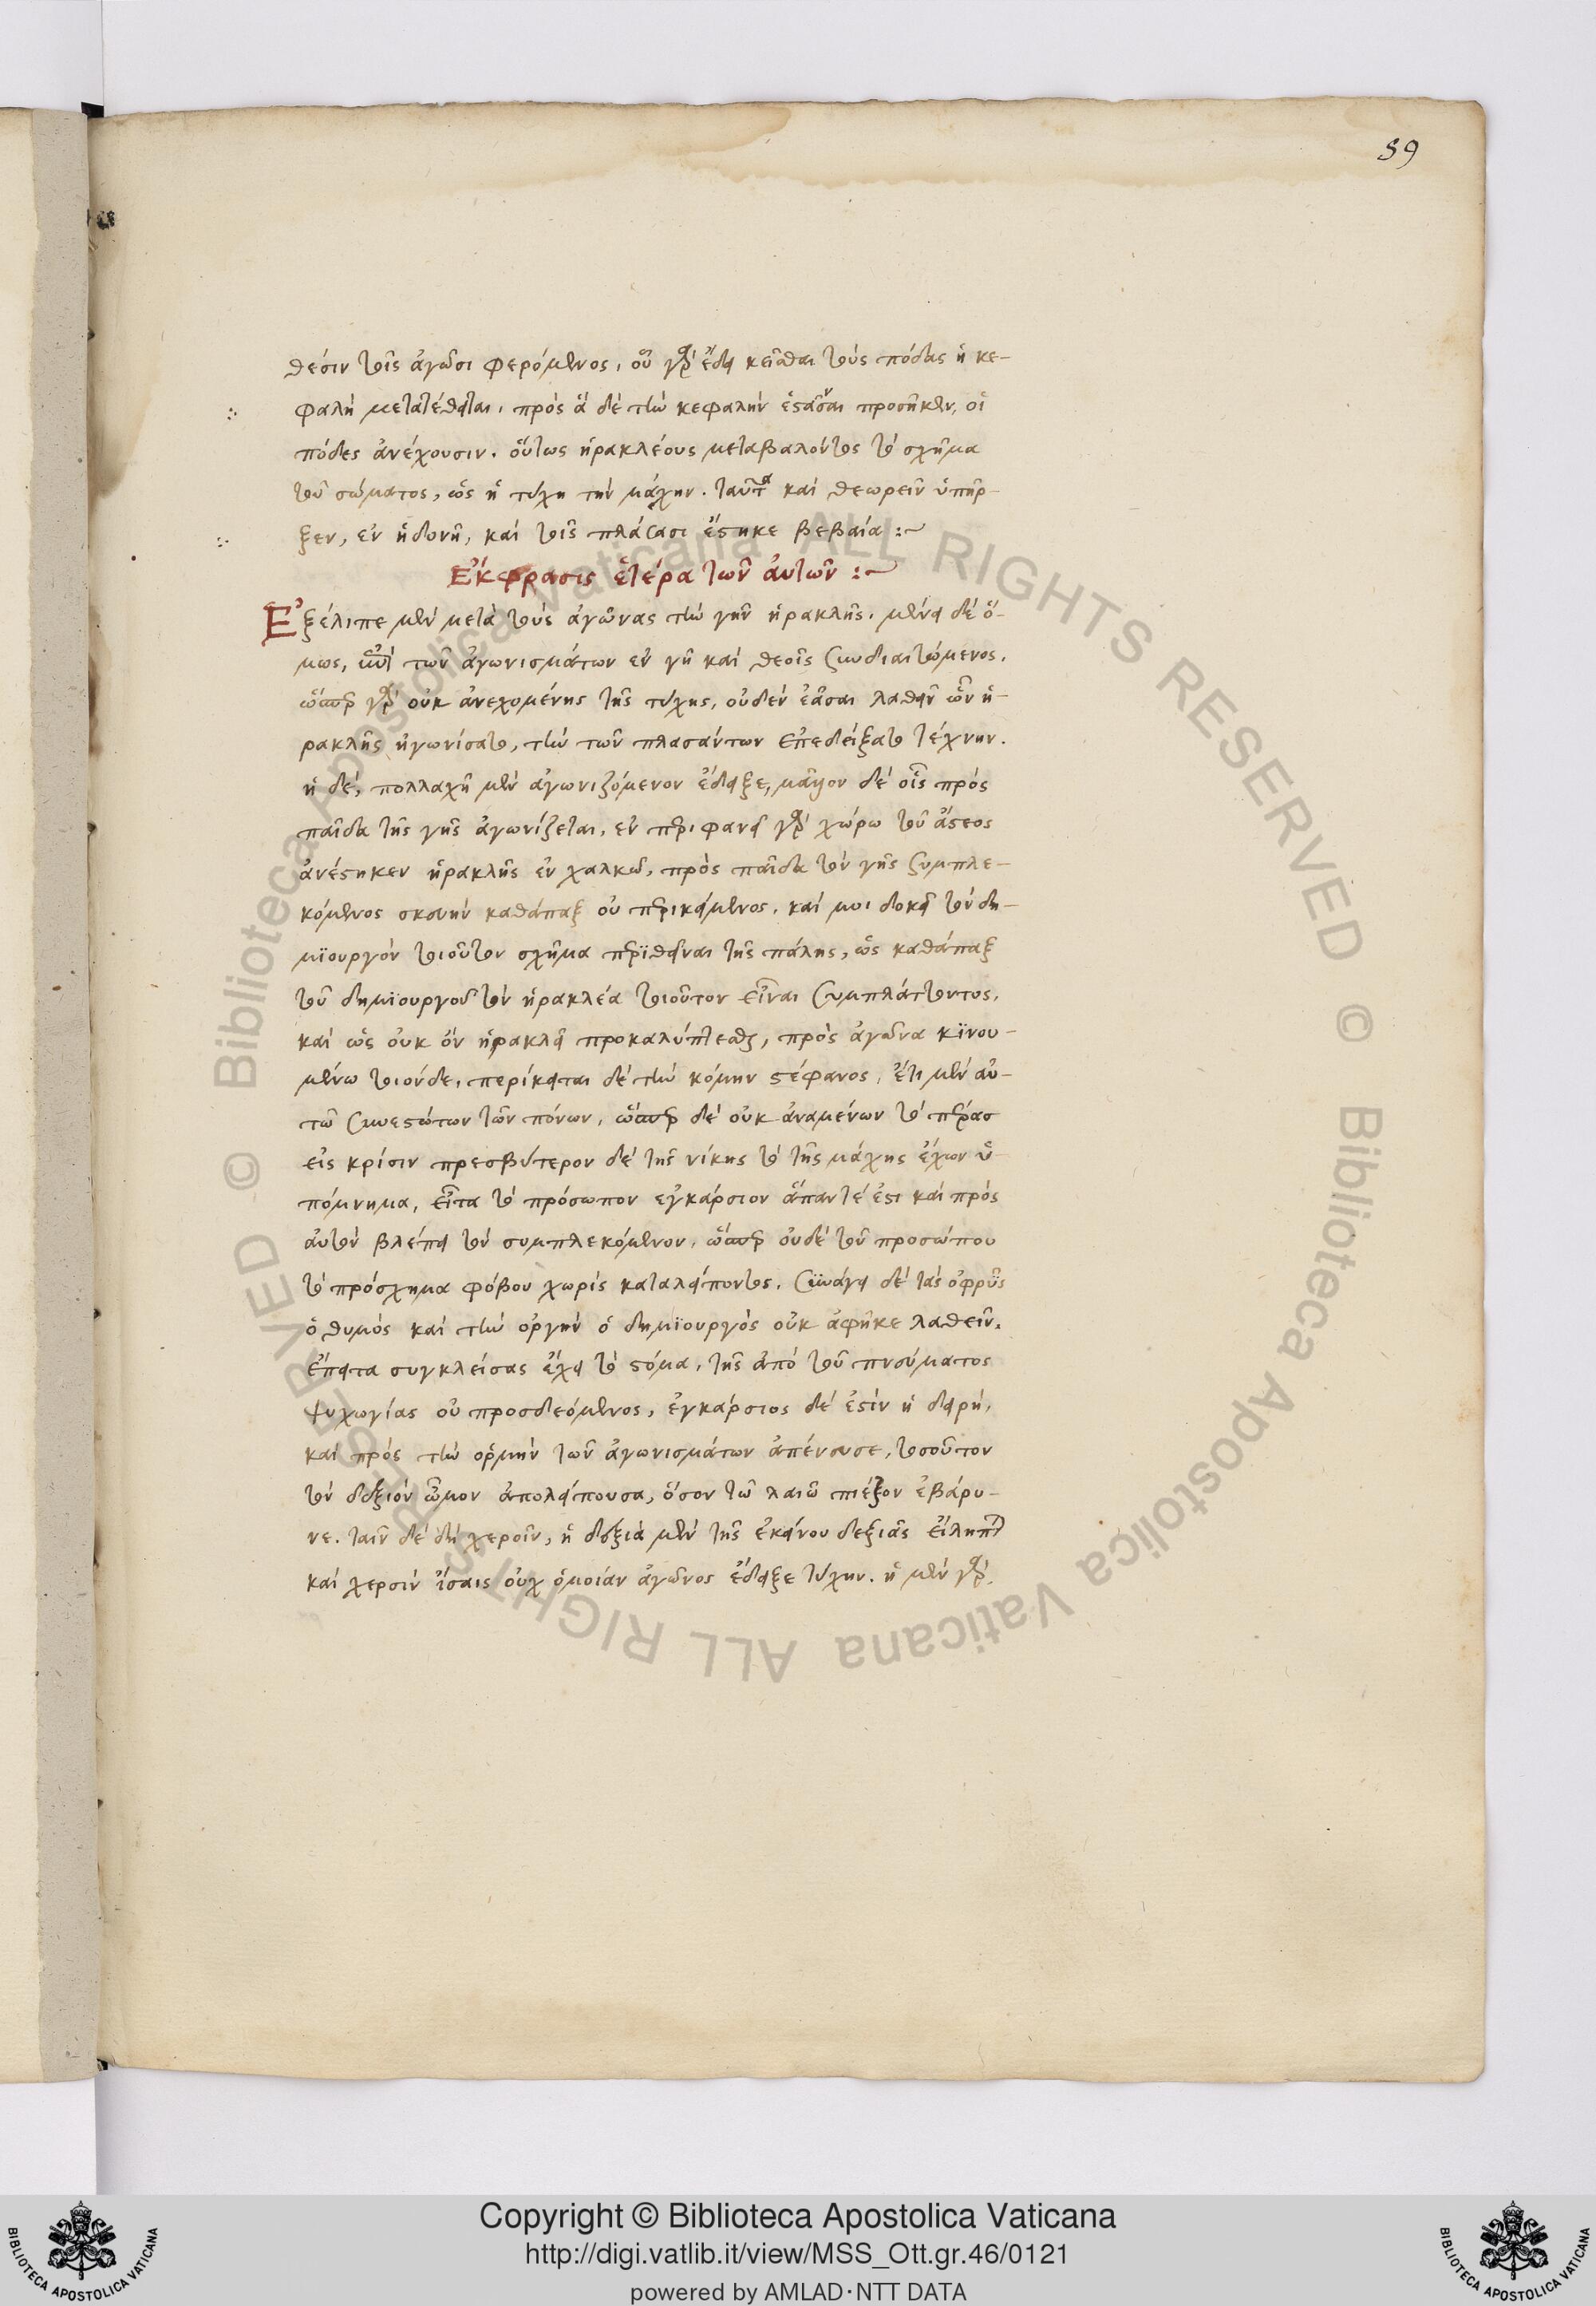 59
θέσιν τοῖς ἀγῶσι φερόμενος, οὗ γὰρ ἔδει κεῖσθαι τοὺς πόδας ἡ κε-
φαλὴ μετατέθειται, πρὸς ἃ δὲ τὴν κεφαλὴν ἑστάναι προσῆκεν, οἱ
πόδες ἀνέχουσιν. οὕτως ἡρακλέους μεταβαλόντος τὸ σχῆμα
τοῦ σώματος, ὡς ἡ τύχη τὴν μάχην. ταῦτα καὶ θεωρεῖν ὑπῆρ-
ξεν, ἐν ἡδονῇ, καὶ τοῖς πλάσασι ἕστηκε βεβαία :~
Ἔκφρασις ἑτέρα τῶν αὐτῶν :~
Ἐξέλιπε μὲν μετὰ τοὺς ἀγῶνας τὴν γῆν ἡρακλῆς. μένει δὲ ὅ-
μως, τῶν ἀγωνισμάτων ἐν γῇ καὶ θεοῖς συνδιαιτώμενος.
ὥσπερ γὰρ οὐκ ἀνεχομένης τῆς τύχης, οὐδὲν ἐᾶσαι λαθεῖν ὧν ἡ-
ρακλῆς ἠγωνίσατο, τὴν τῶν πλασάντων ἐπεδείξατο τέχνην.
ἡ δὲ, πολλαχῆ μὲν ἀγωνιζόμενον ἔδειξε, μᾶλλον δὲ οἷς πρὸς
παῖδα τῆς γῆς ἀγωνίζεται, ἐν περιφανεῖ γὰρ χώρω τοῦ ἄστεος
ἀνέστηκεν ἡρακλῆς ἐν χαλκῶ, πρὸς παῖδα τὸν γῆς συμπλε-
κόμενος σκευὴν καθάπαξ οὐ περικείμενος. καί μοι δοκεῖ τὸν δη-
μϊουργὸν τοιοῦτον σχῆμα περϊθεῖναι τῆς πάλης, ὡς καθάπαξ
τοῦ δημϊουργοῦ τὸν ἡρακλέα τοιοῦτον εἶναι συμπλάττοντος,
καὶ ὡς οὐκ ὂν ἡρακλεῖ προκαλύπτεσθαι, πρὸς ἀγῶνα κϊνου-
μένω τοιόνδε. περίκειται δὲ τὴν κόμην στέφανος, ἔτι μὲν αὐ-
τῶ συνεστώτων τῶν πόνων, ὥσπερ δὲ οὐκ ἀναμένων τὸ πέρας
εἰς κρίσιν πρεσβύτερον δὲ τῆς νίκης τὸ τῆς μάχης ἔχων ὑ-
πόμνημα, εἶτα τὸ πρόσωπον ἐγκάρσιον ἅπαν τέ ἐστι καὶ πρὸς
αὐτὸν βλέπει τὸν συμπλεκόμενον, ὥσπερ οὐδὲ τοῦ προσώπου
τὸ πρόσχημα φόβου χωρὶς καταλείποντος. συνάγει δὲ τὰς ὀφρῦς
ὁ θυμὸς καὶ τὴν ὀργὴν ὁ δημϊουργὸς οὐκ ἀφῆκε λαθεῖν.
ἔπειτα συγκλείσας ἔχει τὸ στόμα, τῆς ἀπὸ τοῦ πνεύματος
ψυχωγίας οὐ προσδεόμενος, ἐγκάρσιος δέ ἐστὶν ἡ δειρὴ,
καὶ πρὸς τὴν ὁρμὴν τῶν ἀγωνισμάτων ἀπένευσε, τοσοῦτον
τὸν δεξιὸν ὦμον ἀπολείπουσα, ὅσον τῶ λαιῶ πιέζον ἐβάρυ-
νε. ταῖν δὲ δὴ χεροῖν, ἡ δεξιὰ μὲν τῆς ἐκείνου δεξιᾶς εἴληπται
καὶ χερσὶν ἴσαις οὐχ ὁμοίαν ἀγῶνος ἔδειξε τύχην. ἡ μὲν γὰρ,
Copyright © Biblioteca Apostolica Vaticana
http://digi.vatlib.it/view/MSS_Ott.gr.46/0121
powered by AMLAD·NTT DATA
BIBLIOTECA APOSTOLICA VATICANA
BIBLIOTECA APOSTOLICA VATICANA
© Biblioteca Apostolica Vaticana ALL RIGHTS RESERVED © Biblioteca Apostolica Vaticana ALL RIGHTS RESERVED